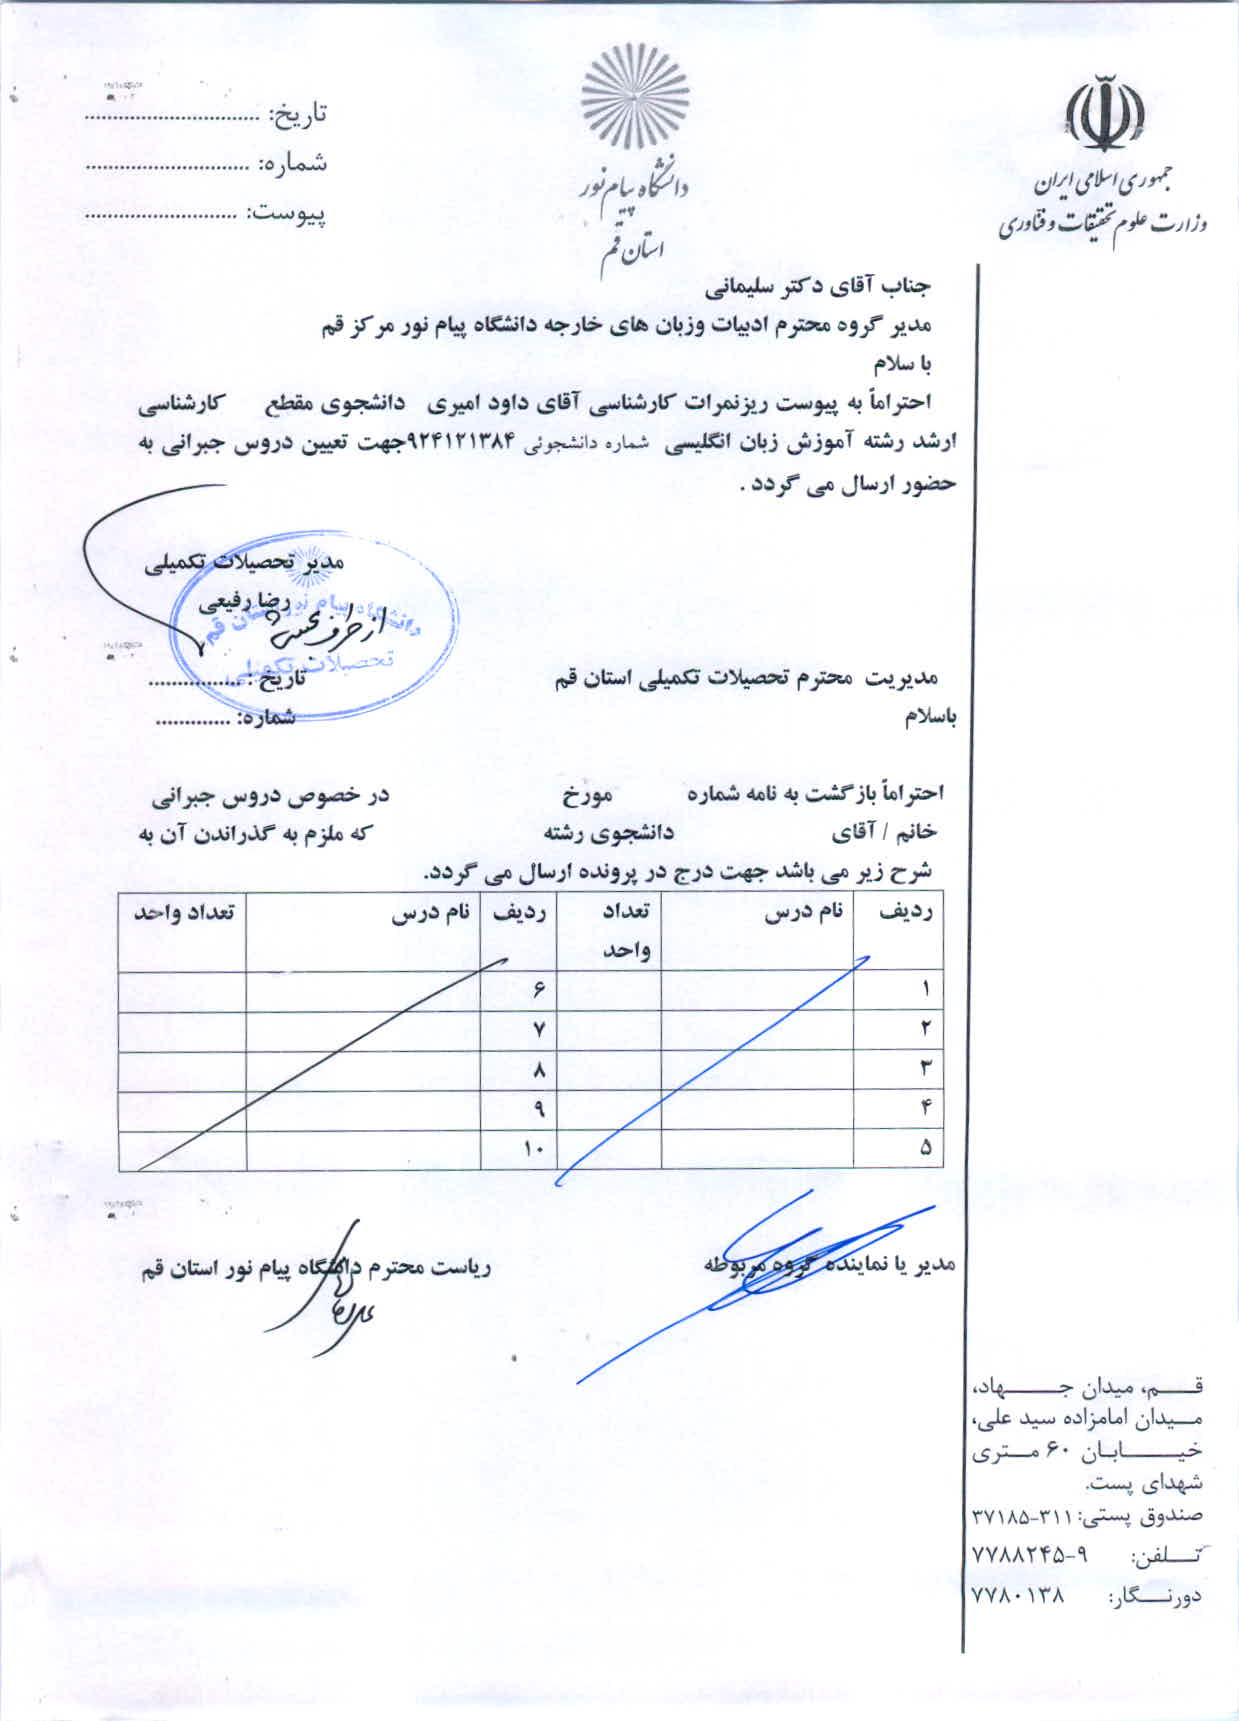 جمهوری اسلامی ایران
وزارت علوم تحقیقات و فناوری
دانشگاه پیام نور
استان قم
تاریخ: ..............................
شماره: ............................
پیوست: ..........................
جناب آقای دکتر سلیمانی
مدیر گروه محترم ادبیات وزبان های خارجه دانشگاه پیام نور مرکز قم
با سلام
احتراماً به پیوست ریزنمرات کارشناسی آقای داود امیری دانشجوی مقطع کارشناسی
ارشد رشته آموزش زبان انگلیسی شماره دانشجوئی ۹۲۴۱۲۱۳۸۴جهت تعیین دروس جبرانی به
حضور ارسال می گردد .
مدیر تحصیلات تکمیلی
رضا رفیعی
از طرف
دانشگاه پیام نور استان قم
تحصیلات تکمیلی
مدیریت محترم تحصیلات تکمیلی استان قم
تاریخ : ................
باسلام
شماره: .............
احتراماً بازگشت به نامه شماره مورخ در خصوص دروس جبرانی
خانم / آقای دانشجوی رشته که ملزم به گذراندن آن به
شرح زیر می باشد جهت درج در پرونده ارسال می گردد.
ردیف نام درس تعداد واحد ردیف نام درس تعداد واحد
۱ ۶
۲ ۷
۳ ۸
۴ ۹
۵ ۱۰
مدیر یا نماینده گروه مربوطه
ریاست محترم دانشگاه پیام نور استان قم
قم، میدان جهاد،
میدان امامزاده سید علی،
خیابان ۶۰ متری
شهدای پست.
صندوق پستی: ۳۷۱۸۵-۳۱۱
تلفن: ۷۷۸۸۲۴۵-۹
دورنگار: ۷۷۸۰۱۳۸